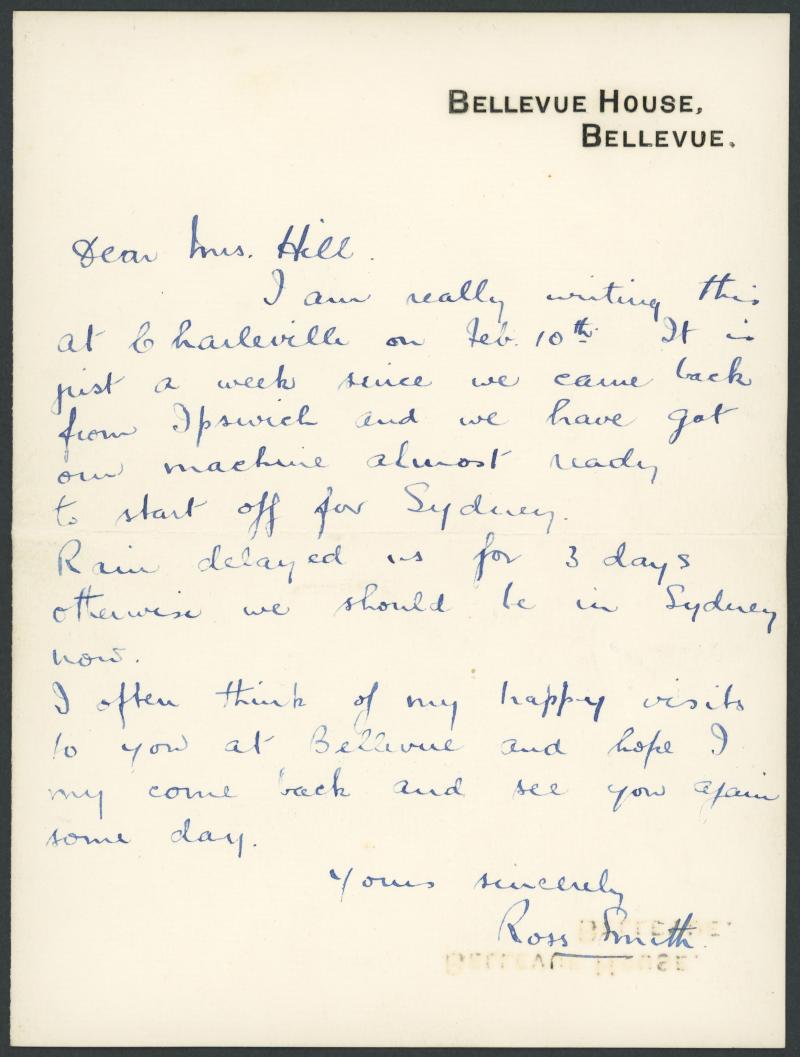 BELLEVUE HOUSE,
BELLEVUE.
Dear Mrs. Hill.
I am really writing this
at Charleville on Feb. 10th. It is
just a week since we came back
from Ipswich and we have got
our machine almost ready
to start off for Sydney.
Rain delayed us for 3 days
otherwise we should be in Sydney
now.
I often think of my happy visits
to you at Bellevue and hope I
my come back and see you again
some day.
Yours sincerely
Ross Smith.
BELLEVUE.
BELLEVUE HOUSE.